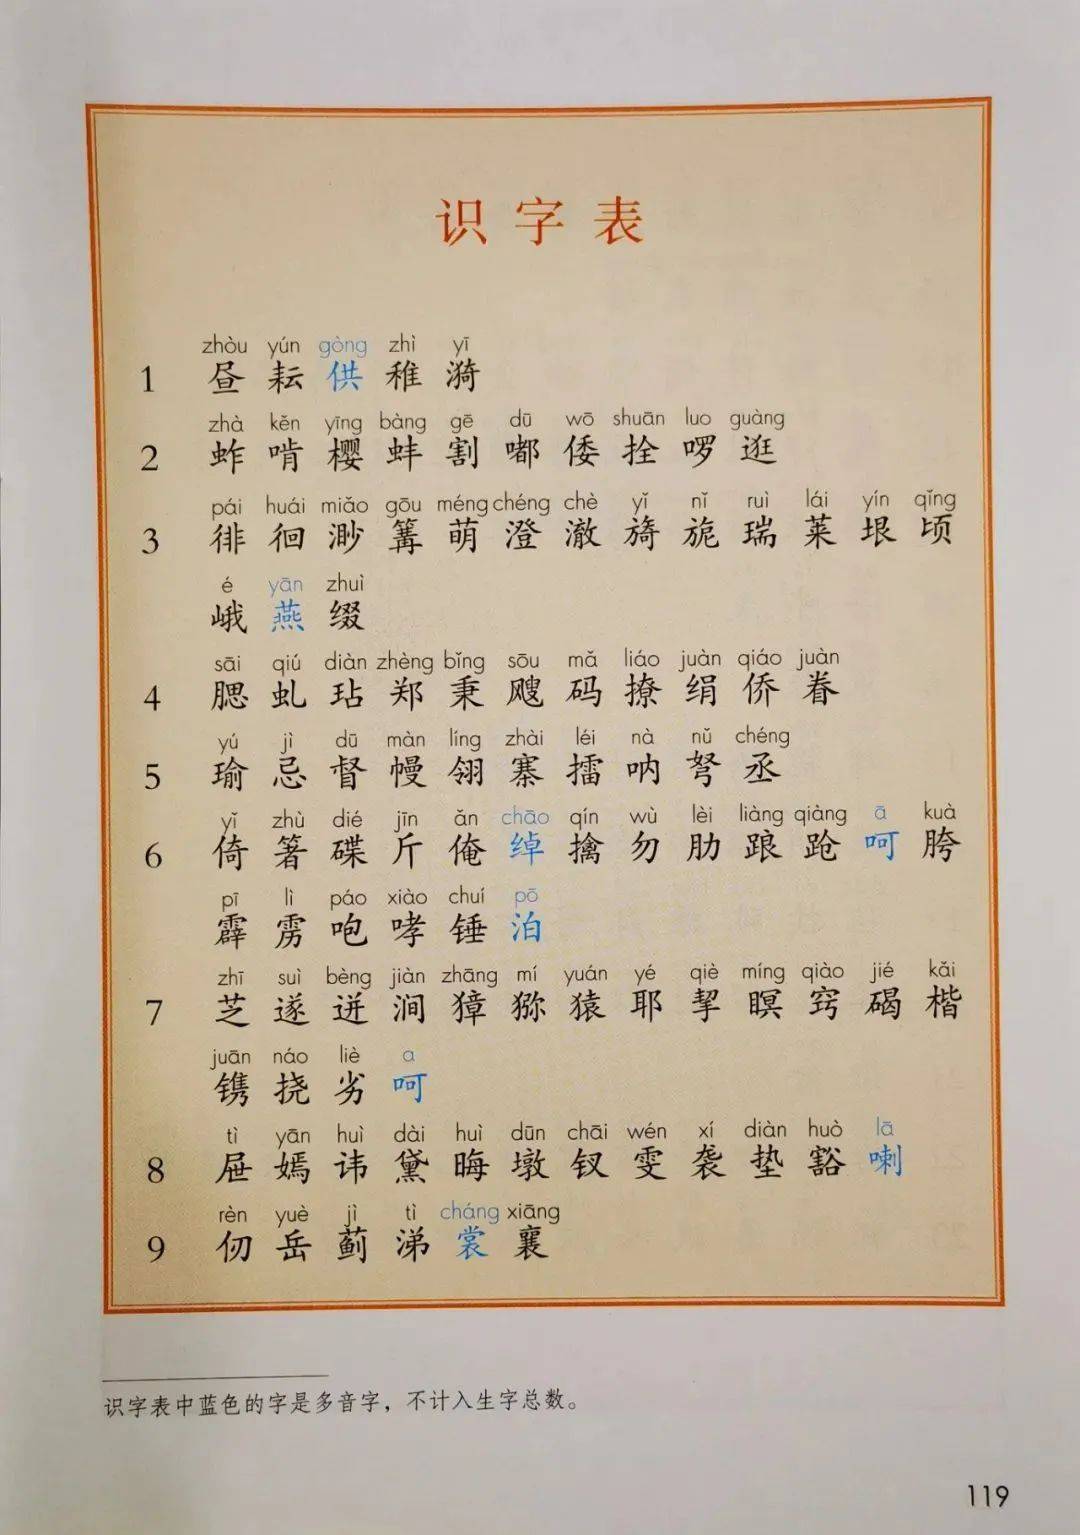 识字表
zhòu yún gòng zhì yī
1 昼 耘 供 稚 漪
zhà kěn yīng bàng gē dū wō shuān luo guàng
2 蚱 啃 樱 蚌 割 嘟 倭 拴 啰 逛
pái huái miǎo gōu méng chéng chè yǐ nǐ ruì lái yín qǐng
3 徘 徊 渺 篝 萌 澄 澈 旖 旎 瑞 莱 垠 顷
é yān zhuì
峨 燕 缀
sāi qiú diàn zhèng bǐng sōu mǎ liáo juàn qiáo juàn
4 腮 虬 玷 郑 秉 飕 码 撩 绢 侨 眷
yú jì dū màn líng zhài léi nà nǔ chéng
5 瑜 忌 督 幔 翎 寨 擂 呐 弩 丞
yǐ zhù dié jīn ǎn chāo qín wù lèi liàng qiàng ā kuà
6 倚 箸 碟 斤 俺 绰 擒 勿 肋 踉 跄 呵 胯
pī lì páo xiào chuí pō
霹 雳 咆 哮 锤 泊
zhī suì bèng jiàn zhāng mí yuán yé qiè míng qiào jié kǎi
7 芝 遂 迸 涧 獐 猕 猿 耶 挈 瞑 窍 碣 楷
juān náo liè a
镌 挠 劣 呵
tì yān huì dài huì dūn chāi wén xí diàn huò lā
8 屉 嫣 讳 黛 晦 墩 钗 雯 袭 垫 豁 喇
rèn yuè jì tì cháng xiāng
9 仞 岳 蓟 涕 裳 襄
识字表中蓝色的字是多音字，不计入生字总数。
119